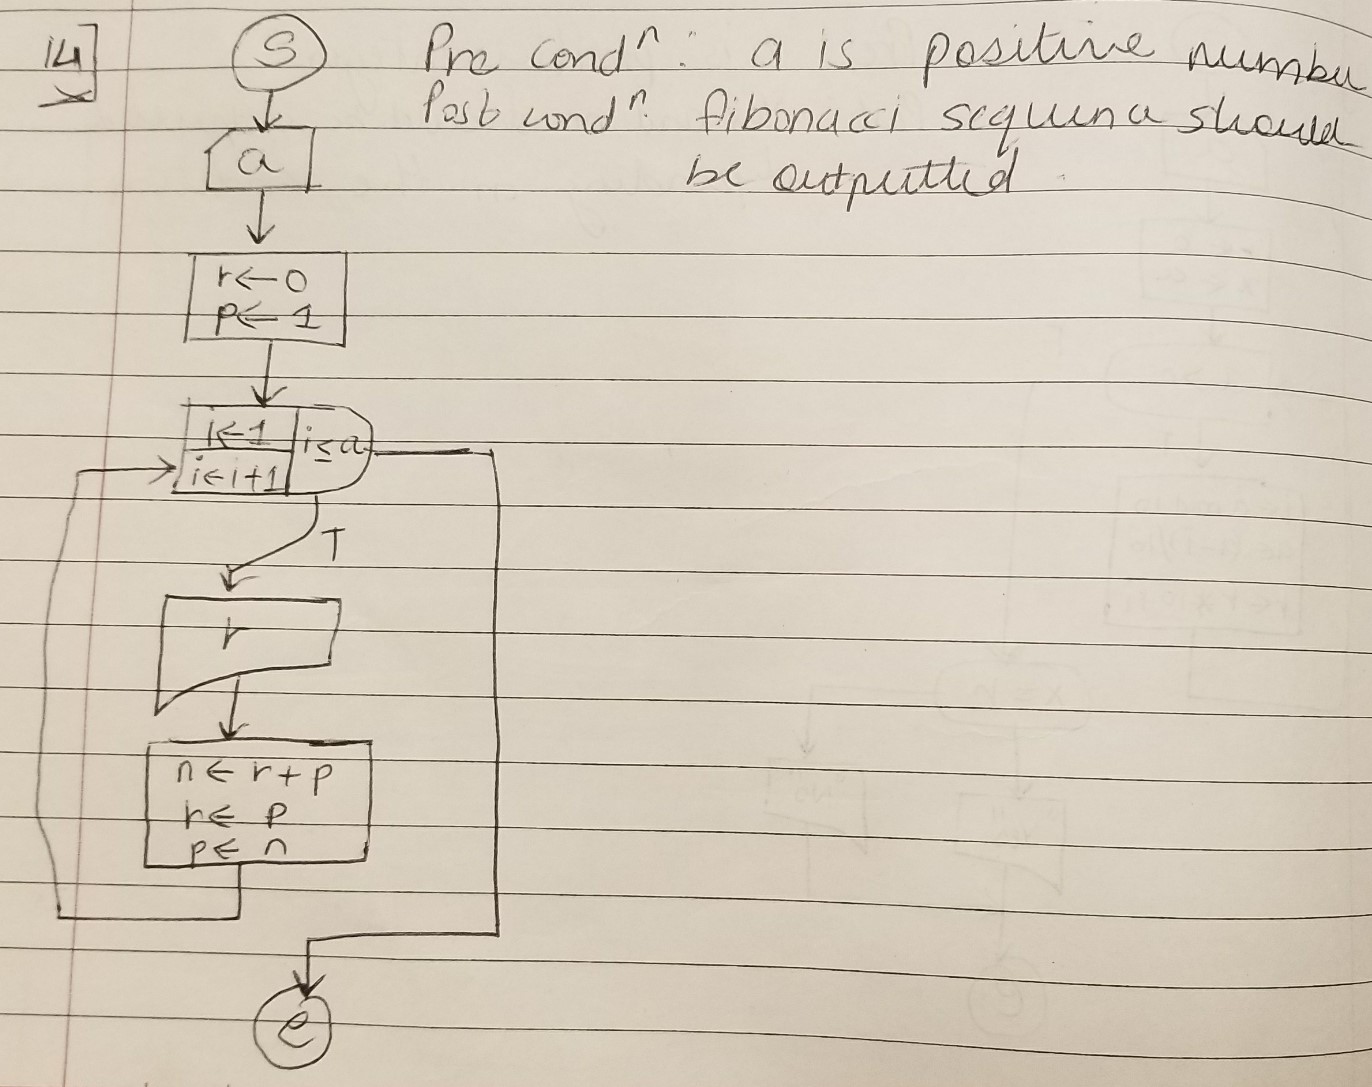 14]
S
Pre condⁿ: a is positive number
Post condⁿ: fibonacci sequence should
be outputted
a
r←0
p←1
i←1
i←i+1
i≤a
T
r
n←r+p
r←p
p←n
e